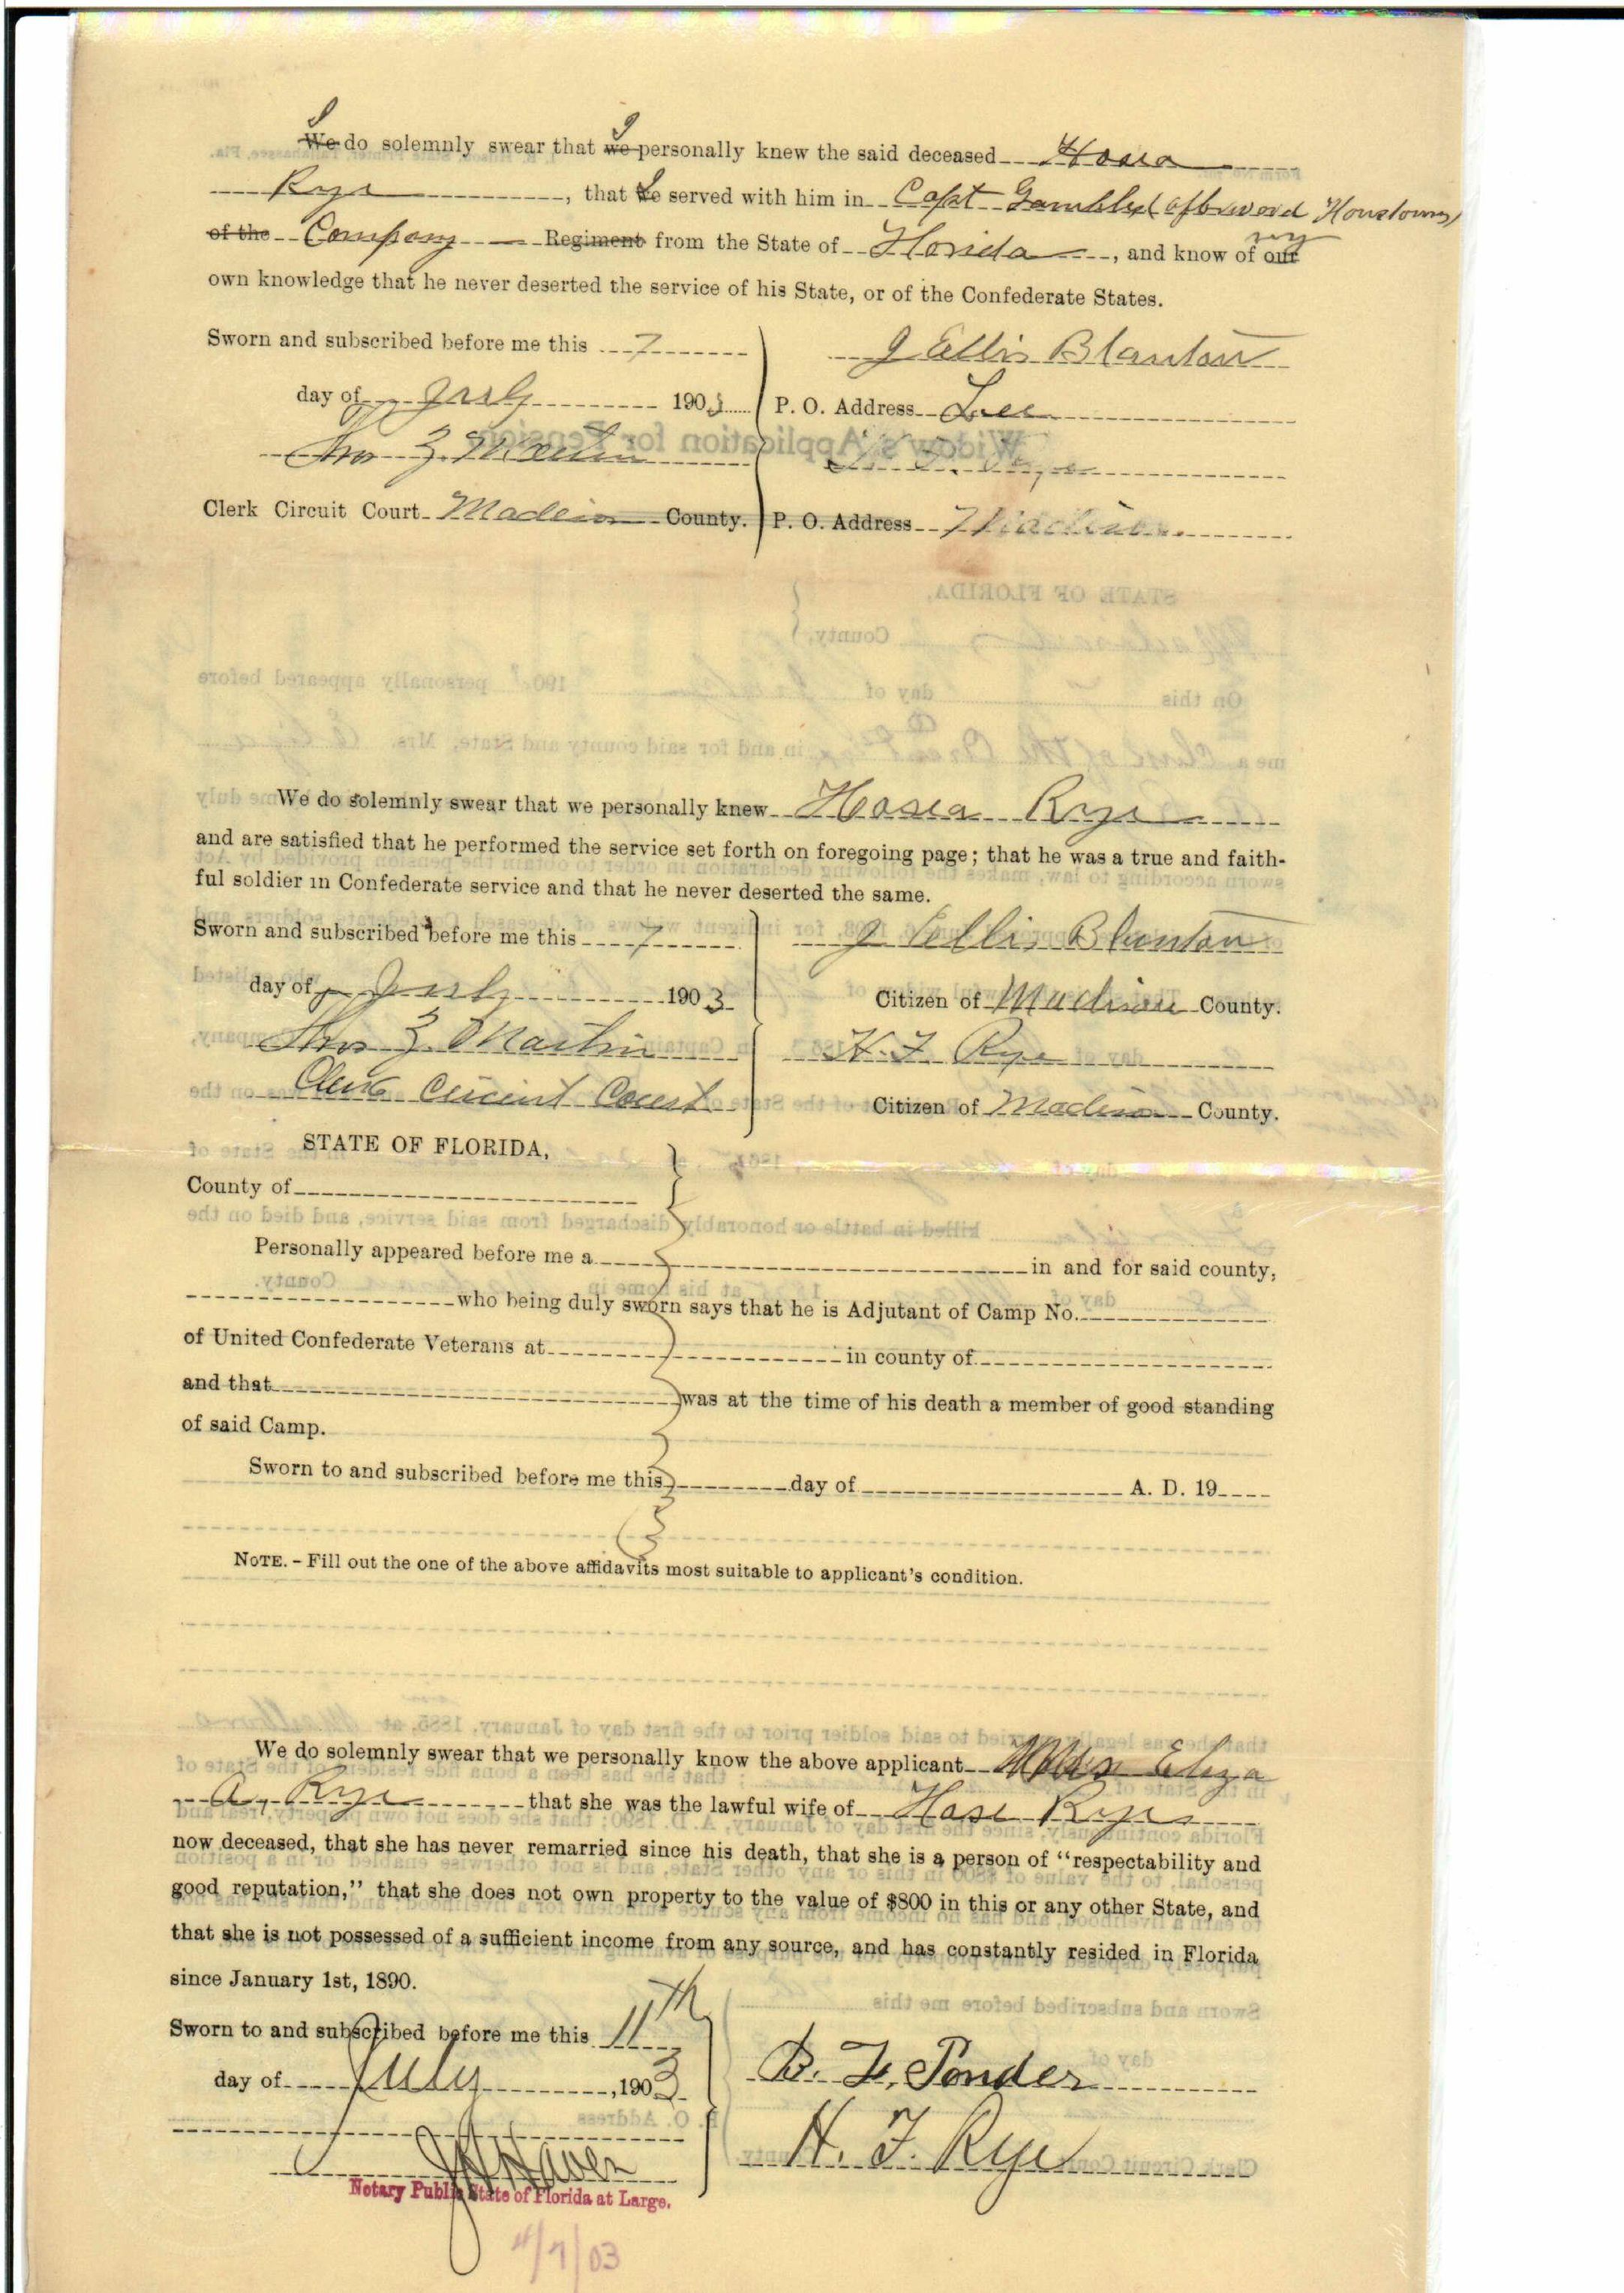 I I
We do solemnly swear that we personally knew the said deceased Hosea
Rye, that he served with him in Capt Gambles (afterword Houstouns)
of the Company Regiment from the State of Florida, and know of our my
own knowledge that he never deserted the service of his State, or of the Confederate States.
Sworn and subscribed before me this 7
J Ellis Blanton
day of July 1903
P. O. Address Lee
Thos Z Martin
Clerk Circuit Court Madison County.
P. O. Address Madison
Widow's Application for Pension
STATE OF FLORIDA,
County.
On this day of 190 personally appeared before
in and for said county and State, Mrs.
We do solemnly swear that we personally knew Hosea Rye
and are satisfied that he performed the service set forth on foregoing page; that he was a true and faith-
ful soldier in Confederate service and that he never deserted the same.
Sworn and subscribed before me this 7
J Ellis Blanton
day of July 1903
Citizen of Madison County.
Thos Z. Martin
H. F. Rye
Clerk Circuit Court
Citizen of Madison County.
STATE OF FLORIDA,
County of
killed in battle or honorably discharged from said service, and died on the
Personally appeared before me a in and for said county,
who being duly sworn says that he is Adjutant of Camp No.
of United Confederate Veterans at in county of
and that was at the time of his death a member of good standing
of said Camp.
Sworn to and subscribed before me this day of A. D. 19
NOTE. - Fill out the one of the above affidavits most suitable to applicant's condition.
We do solemnly swear that we personally know the above applicant Mrs Eliza
A, Rye that she was the lawful wife of Hose Rye
now deceased, that she has never remarried since his death, that she is a person of "respectability and
good reputation," that she does not own property to the value of $800 in this or any other State, and
that she is not possessed of a sufficient income from any source, and has constantly resided in Florida
since January 1st, 1890.
Sworn and subscribed before me this
Sworn to and subscribed before me this 11th
day of July, 1903
B. F. Ponder
H. F. Rye
Notary Public State of Florida at Large.
/7/03